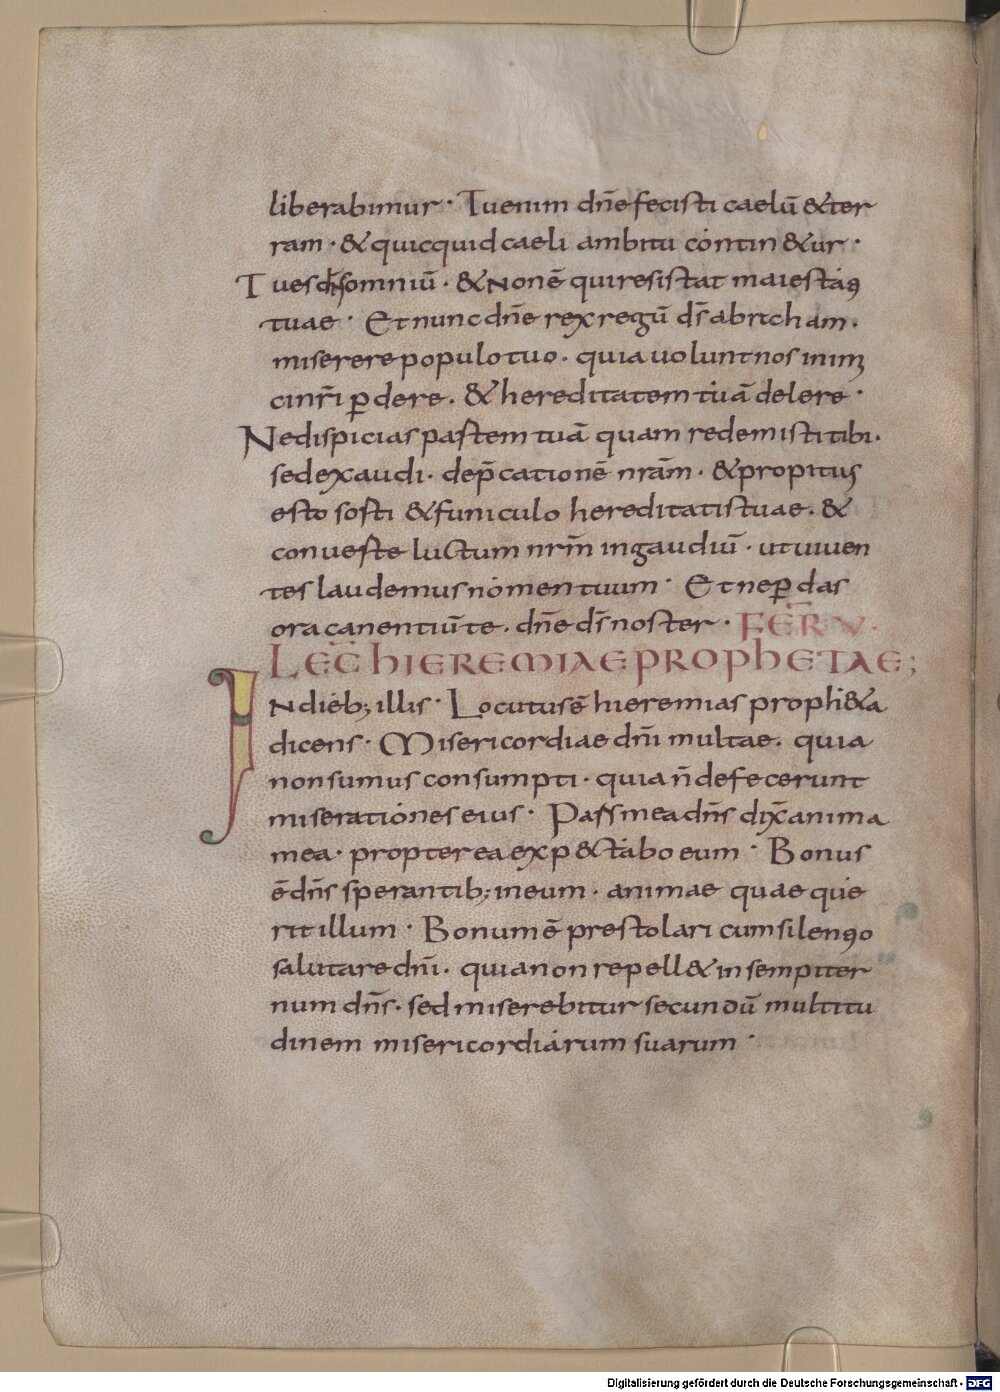 liberabimur · Tu enim dn̄e fecisti caelū & ter
ram · & quicquid caeli ambitu contin&ur ·
Tu es dn̄s omniū · & non ē qui resistat maiestati
tuae · Et nunc dn̄e rex regū ds̄ abraham ·
miserere populo tuo · quia uolunt nos inimi
ci nr̄i ꝑdere · & hereditatem tuā delere ·
Ne dispicias partem tuā quam redemisti tibi ·
sed exaudi · dep̄cationē nrām · & propitius
esto sorti & funiculo hereditatis tuae · &
conuerte luctum nrm̄ in gaudiū · ut uiuen
tes laudemus nomen tuum · Et ne ꝑdas
ora canentiū te · dn̄e ds̄ noster · FER̄ V ·
LEC̄ HIEREMIAE PROPHETAE;
IN dieb; illis · Locutus ē hieremias proph&a
dicens · Misericordiae dn̄i multae · quia
non sumus consumpti · quia n̄ defecerunt
miserationes eius · Pars mea dn̄s dix̄ anima
mea · propterea exp&tabo eum · Bonus
ē dn̄s sperantib; in eum · animae quae que
rit illum · Bonum ē prestolari cum silentio
salutare dn̄i · quia non repell& in sempiter
num dn̄s · sed miserebitur secundū multitu
dinem misericordiarum suarum ·
Digitalisierung gefördert durch die Deutsche Forschungsgemeinschaft - DFG